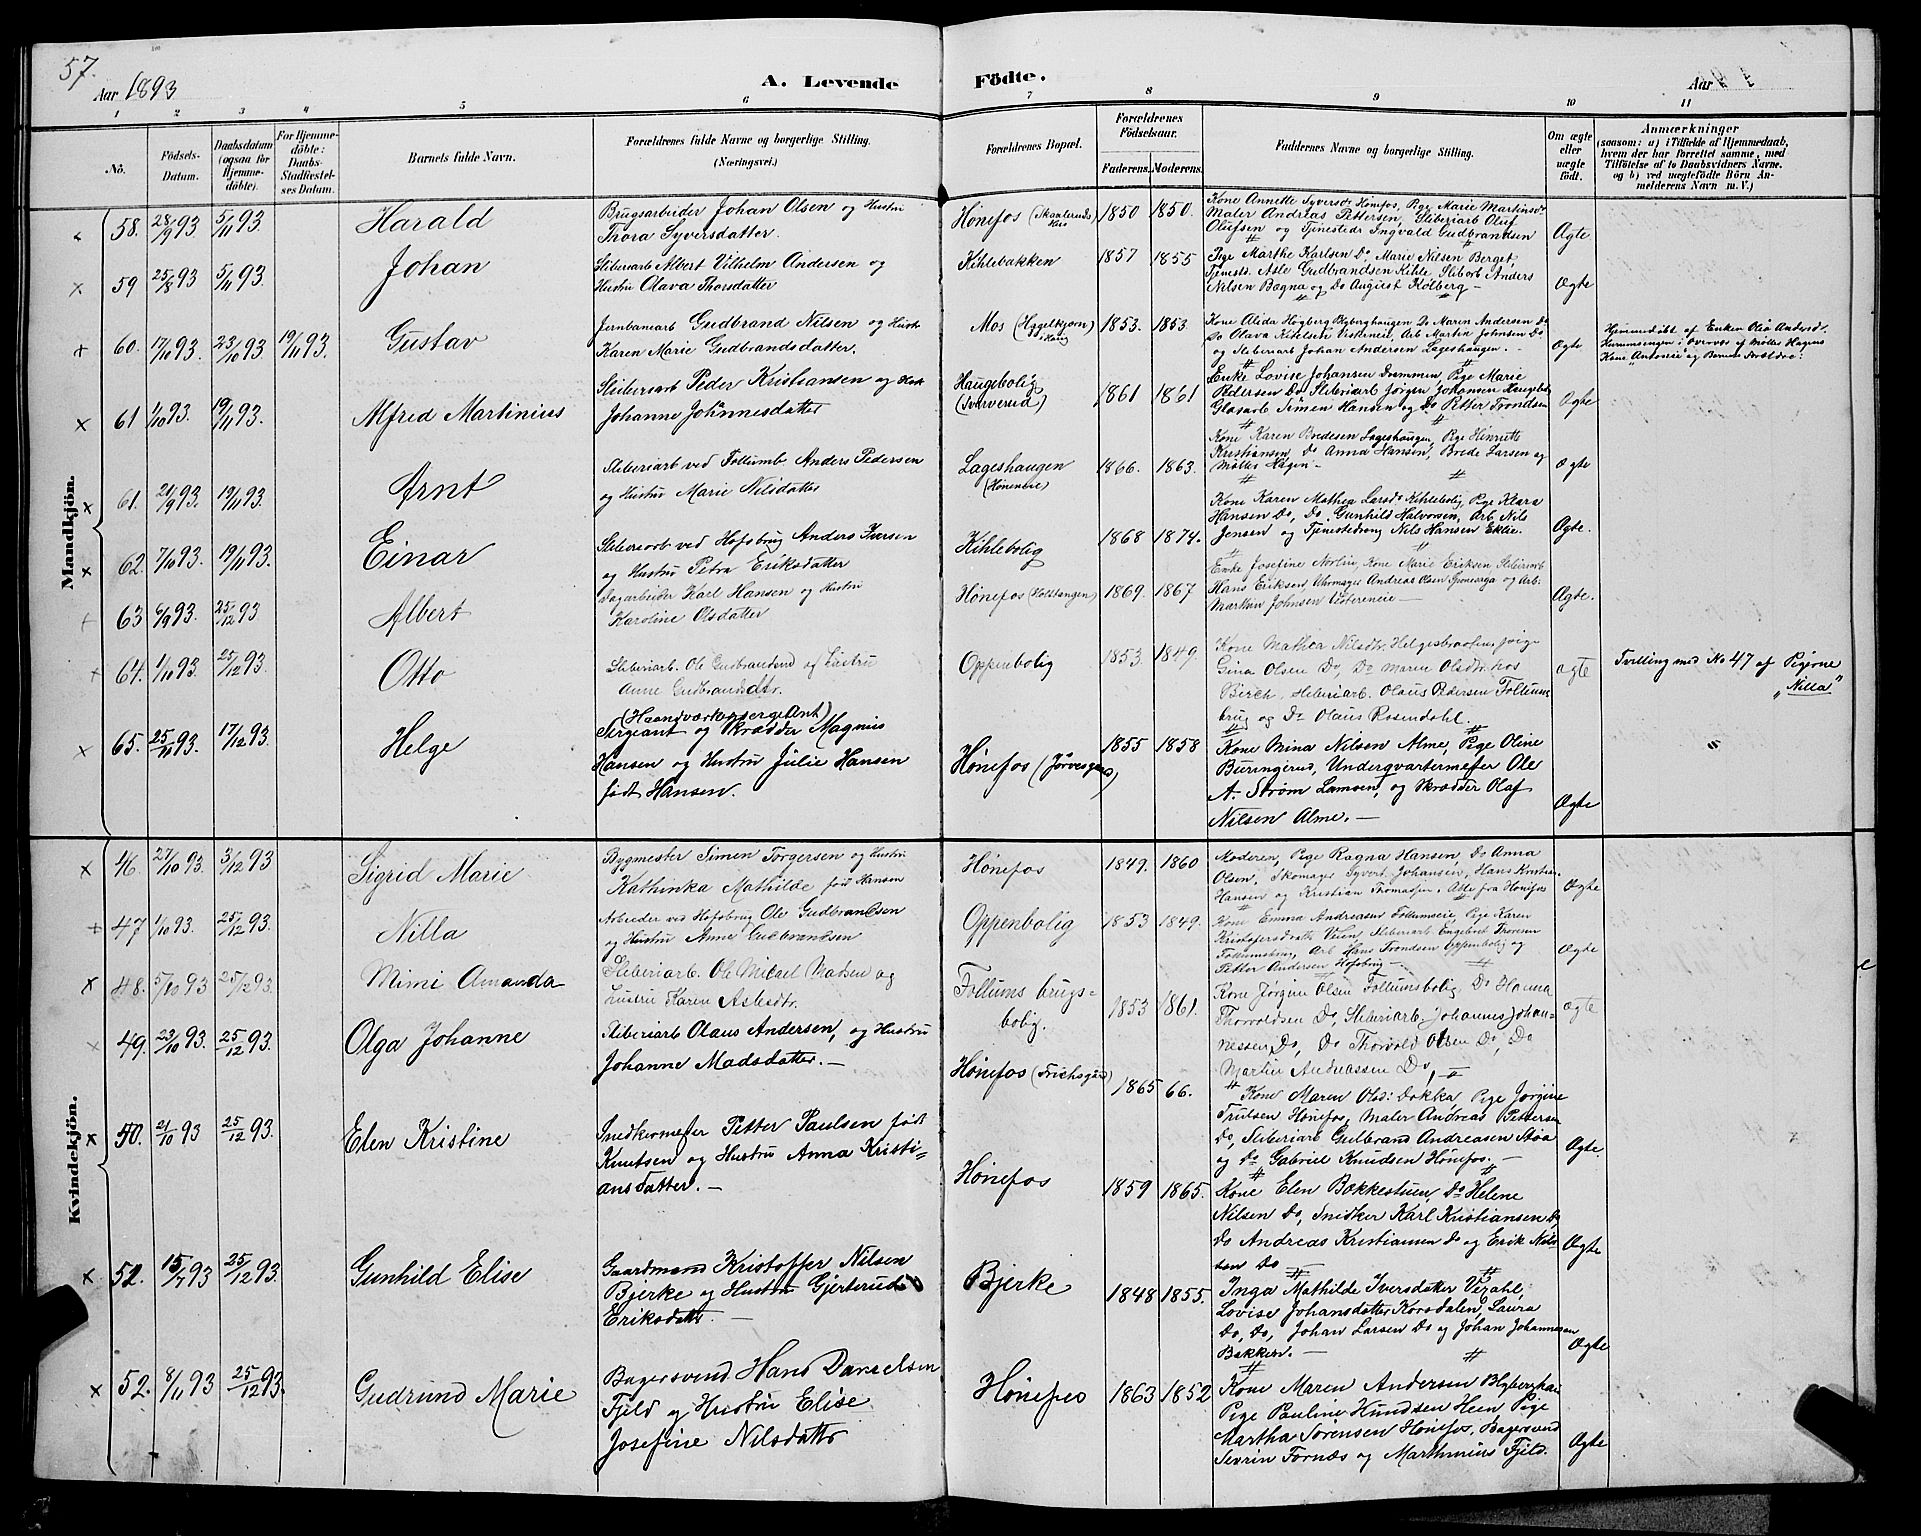 57.
Aar 1893
A. Levende Födte.
Aar
1 2 3 4 5 6 7 8 9 10 11
No.
Födsels-Datum.
Daabsdatum (ogsaa for Hjemme-döbte).
For Hjemme-döbte: Daabs-Stadfæstel-ses Datum.
Barnets fulde Navn.
Forældrenes fulde Navne og borgerlige Stilling. (Næringsvei.)
Forældrenes Bopæl.
Forældrenes Födselsaar.
Faderens. Moderens.
Faddernes Navne og borgerlige Stilling.
Om ægte eller uægte födt.
Anmærkninger
(saasom: a) i Tilfælde af Hjemmedaab, hvem der har forrettet samme, med Tilföielse af to Daabsvidners Navne. og b) ved uægtefödte Börn An-melderens Navn m. V.)
Mandkjön.
58. 28/9 93 5/11 93. Harald
Brugsarbeider Johan Olsen og Hustru
Thora Syversdatter.
Hönefos 1850 1850.
Kone Annette Syversdr Hönefos, Pige Marie Martinsdr
Maler Andreas Pettersen, Sliberiarb Oluf
Olufsen og Tjenestedr Ingvald Gudbrandsen
Ægte
59 25/8 93 5/11 93. Johan
Sliberiarb Albert Vilhelm Andersen og
Hustru Olava Thorsdatter
Kihlebakken 1857 1855
Pige Marthe Karlsen Do, Marie Nilsen Berget
Tjenests. Asle Gudbrandsen Kihle, Sliberb Anders
Nilsen Bagna og Do August Kölberg —
Ægte
60. 17/10 93. 23/10 93 19/11 93. Gustav
Jernbanearb Gudbrand Nilsen og Hustr
Karen Marie Gudbrandsdatter.
Mos 1853. 1853
Kone Alida Högberg Blyberghaugen Do Maren Andersen Do
Do Olava Kittelsen Vesterneie, Arb Martin Johnsen Do
og Sliberiarb Johan Andersen Lageshaugen. —
Ægte
Hjemmedöbt af Enken
61 1/10 93. 19/11 93. Alfred Martinius
Sliberiarb Peder Kristiansen og Hust
Johanne Johannesdatter
Haugebolig
1861 1861
Enke Lovise Johansen Drammen, Pige Marie
Pedersen Do, Sliberiarb Jörgen Johansen
Glasarb Simen Hansen og Do Petter Trondsen
Ægte
61. 21/9 93. 19/11 93. Arnt
Sliberiarb ved Follumb. Anders Pedersen
og Hustru Marie Nilsdatter
Lageshaugen
1866. 1863.
Kone Karen Bredesen Lageshaugen, Pige Henriette
Kristiansen, Do Anna Hansen, Brede Larsen og
Möller Hagen —
Ægte
62. 7/10 93. 19/11 93. Einar
Sliberiarb ved Hofsbrug Anders Iversen
og Hustru Petra Eriksdatter
Kihlebolig 1868 1874.
Kone Karen Mathea Larsdr Kihlebolig, Pige Klara
Hansen Do, Do Gunhild Halvorsen, Arb. Nils
Jensen og Tjenestedreng Nils Hansen Eklie.
Ægte.
63 6/9 93. 25/12 93 Albert
Dagarbeider Karl Hansen og Hustru
Karoline Olsdatter
Hönefos (Holstangen) 1869. 1867
Enke Josefine Norlin, Kone Marie Eriksen, Sliberiarb
Hans Eriksen, Uhrmager Andreas Olsen og Arb:
Markus Johnsen Vesterneie —
Ægte.
64. 1/11 93. 25/12 93. Otto
Sliberiarb. Ole Gudbrandsend og Hustru
Anne Gudbrandsdtr.
Oppenbolig 1853. 1849.
Kone Mathea Nilsdtr. Helgesbraaten, pige
Gina Olsen Do, Do Maren Olsdtr. hos
Birch, Sliberiarb. Olaus Pedersen Follum
brug og Do Olaus Rosendahl.
ægte
Tvilling med No 47 af Pigerne
„Nilla"
65. 25/11 93. 17/12 93. Helge
(Haandværkssergeant)
Sergeant og Skrædder Magnus
Hansen og Hustru Julie Hansen
født Hansen.
Hönefos 1855 1858
Kone Mina Nilsen Alme, Pige Oline
Buringerud, Underqvartermester Ole
A. Ström Lamsen, og Skrædder Olaf
Nilsen Alme. —
Ægte
Kvindekjön.
46. 27/10 93. 3/12 93 Sigrid Marie
Bygmester Simen Torgersen og Hustru
Kathinka Mathilde fød Hansen
Hönefos 1849. 1860
Moderen, Pige Ragna Hansen, Do Anna
Olsen, Skomager Syvert Johansen, Hans Kristian
Hansen og Kristian Thomassen. Alle fra Hönefos
Ægte
47. 1/10 93. 25/12 93. Nilla
Arbeider ved Hofsbrug Ole Gudbrandsen
og Hustru Anne Gulbrandsen
Oppenbolig 1853 1849.
Kone Emma Andreasen Follumseie, Pige Karen
Kristofersdatter Veien, Sliberiarb. Engebret Thoresen
Follumsbrug, Arb Hans Trondsen Oppenbolig og
Petter Andersen Hofsbrug —
Ægte
48. 5/10 93 25/12 93. Mimi Amanda
Sliberiarb. Ole Mikael Madsen og
Hustru Karen Aslesdtr.
Follums brugs-
bolig.
1853 1861.
Kone Jörgine Olsen Follumsbolig, Do Hanna
Thorvaldsen Do, Sliberiarb. Johannes Johan-
nessen, Do, Do Thorvald Olsen Do, Do
Martin Andreassen Do,
ægte
49. 23/10 93. 25/12 93. Olga Johanne
Sliberiarb Olaus Andersen, og Hustru
Johanne Madsdatter. —
Hönefos 1865 66.
Kone Maren Olsd: Dokka, Pige Jörgine
Trulsen Hönefos, Maler Andreas Petterse
Do, Sliberiarb Gulbrand Andreasen Støa
og Do Gabriel Knudsen Hönefos. —
Ægte.
50. 21/10 93 25/12 93. Elen Kristine
Snedkermester Petter Paulsen født
Knutsen og Hustru Anna Kristi-
ansdatter. —
Hönefos 1859 1865.
Kone Elen Bakkestuen, Do Helene
Nilsen Do, Snedker Karl Kristiansen Do
Do Andreas Kristiansen Do og Erik Nils-
sen Do
Ægte
52. 15/7 93 25/12 93. Gunhild Elise
Gaardmand Kristoffer Nilsen
Bjerke og Hustru Gjertrud
Eriksdatter. —
Bjerke 1848 1855.
Inga Mathilde Iversdatter
Lovise Johansdatter Korsdalen, Laura
Do, Do, Johan Larsen Do og Johan Johannesen
Bakken. —
Ægte
52. 8/11 93 25/12 93. Gudrund Marie
Bagersvend Hans Danielsen
Fjeld og Hustru Elise
Josefine Nilsdatter
Hönefos 1863 1852
Kone Maren Andersen Blyberghau
Pige Pauline Knudsen Heen Pige
Martha Sörensen Hönefos, Bagersvend
Sevrin Fornæs og Marthinius Fjeld.
Ægte